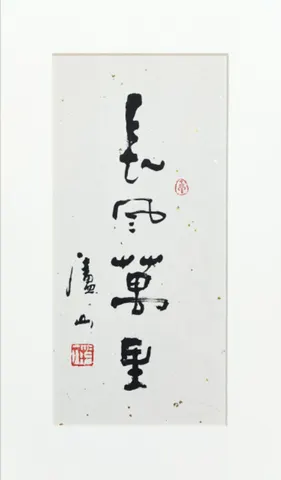 長風萬里
廬山